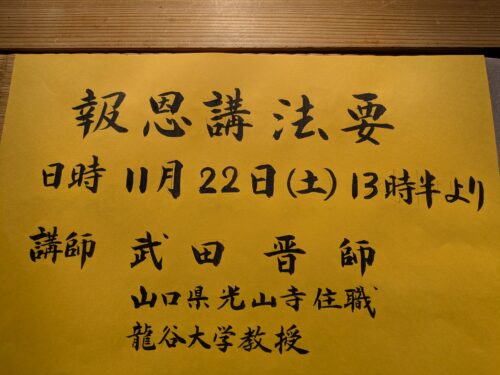 報恩講法要
日時 11月22日(土) 13時半より
講師 武田 晋 師
山口県光山寺住職
龍谷大学教授